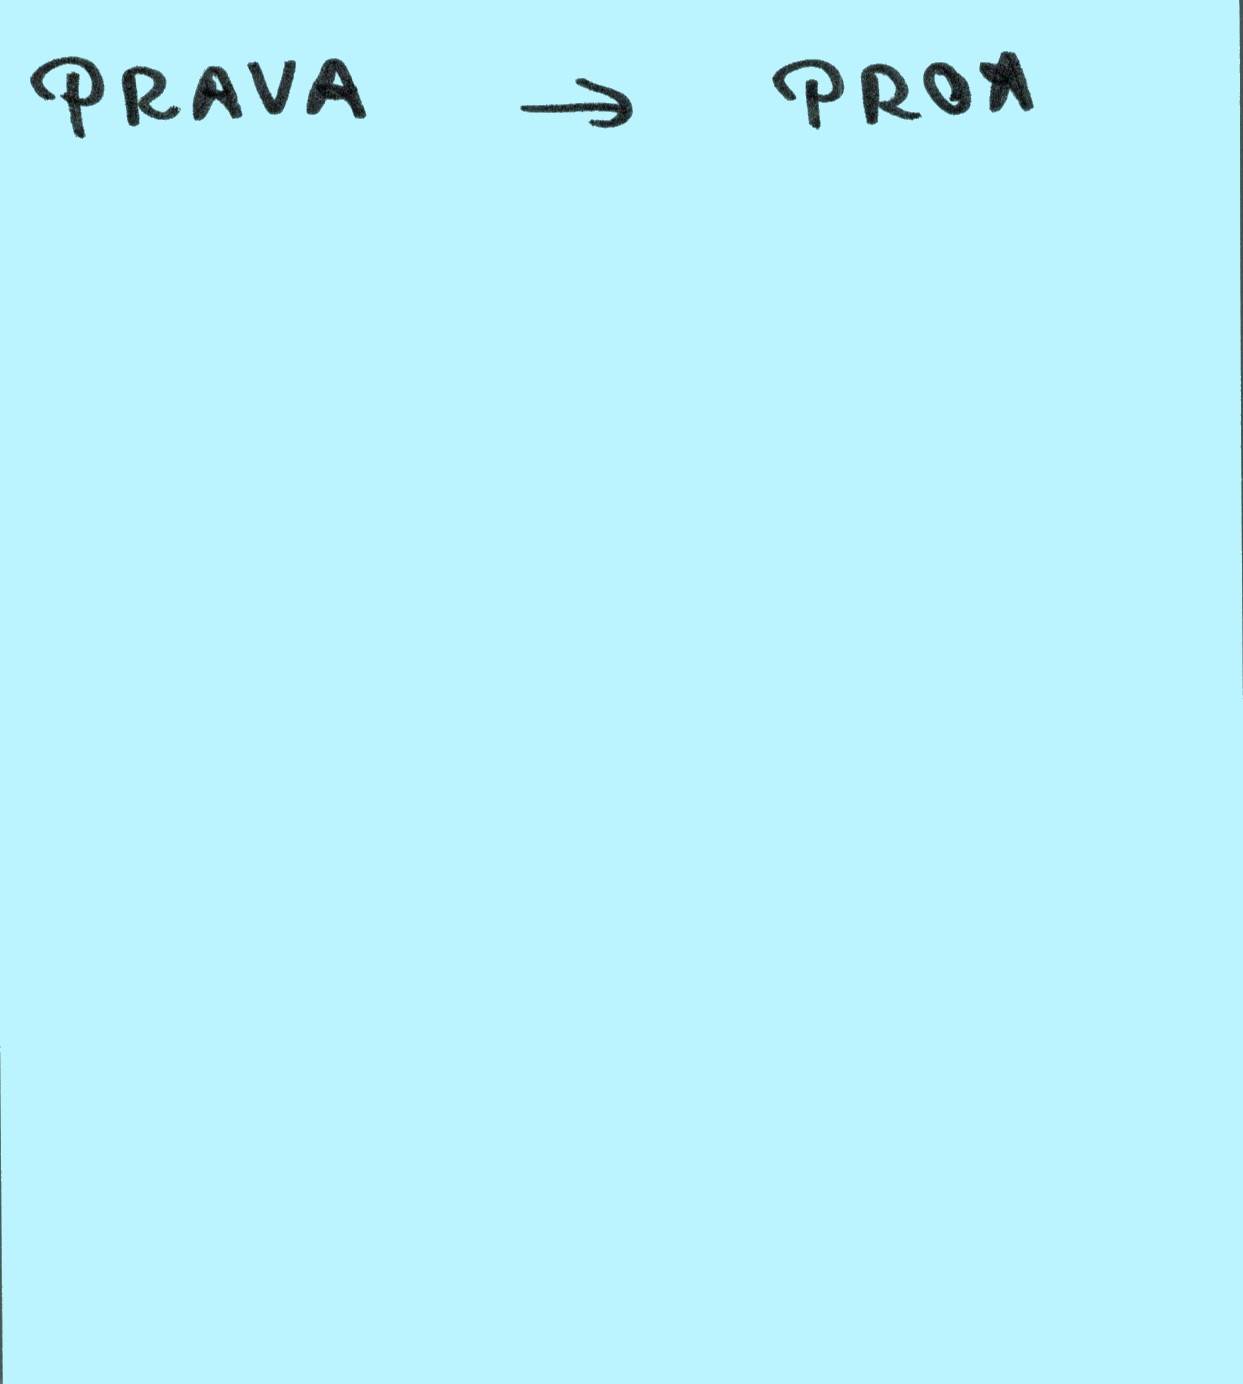 PRAVA → PROA